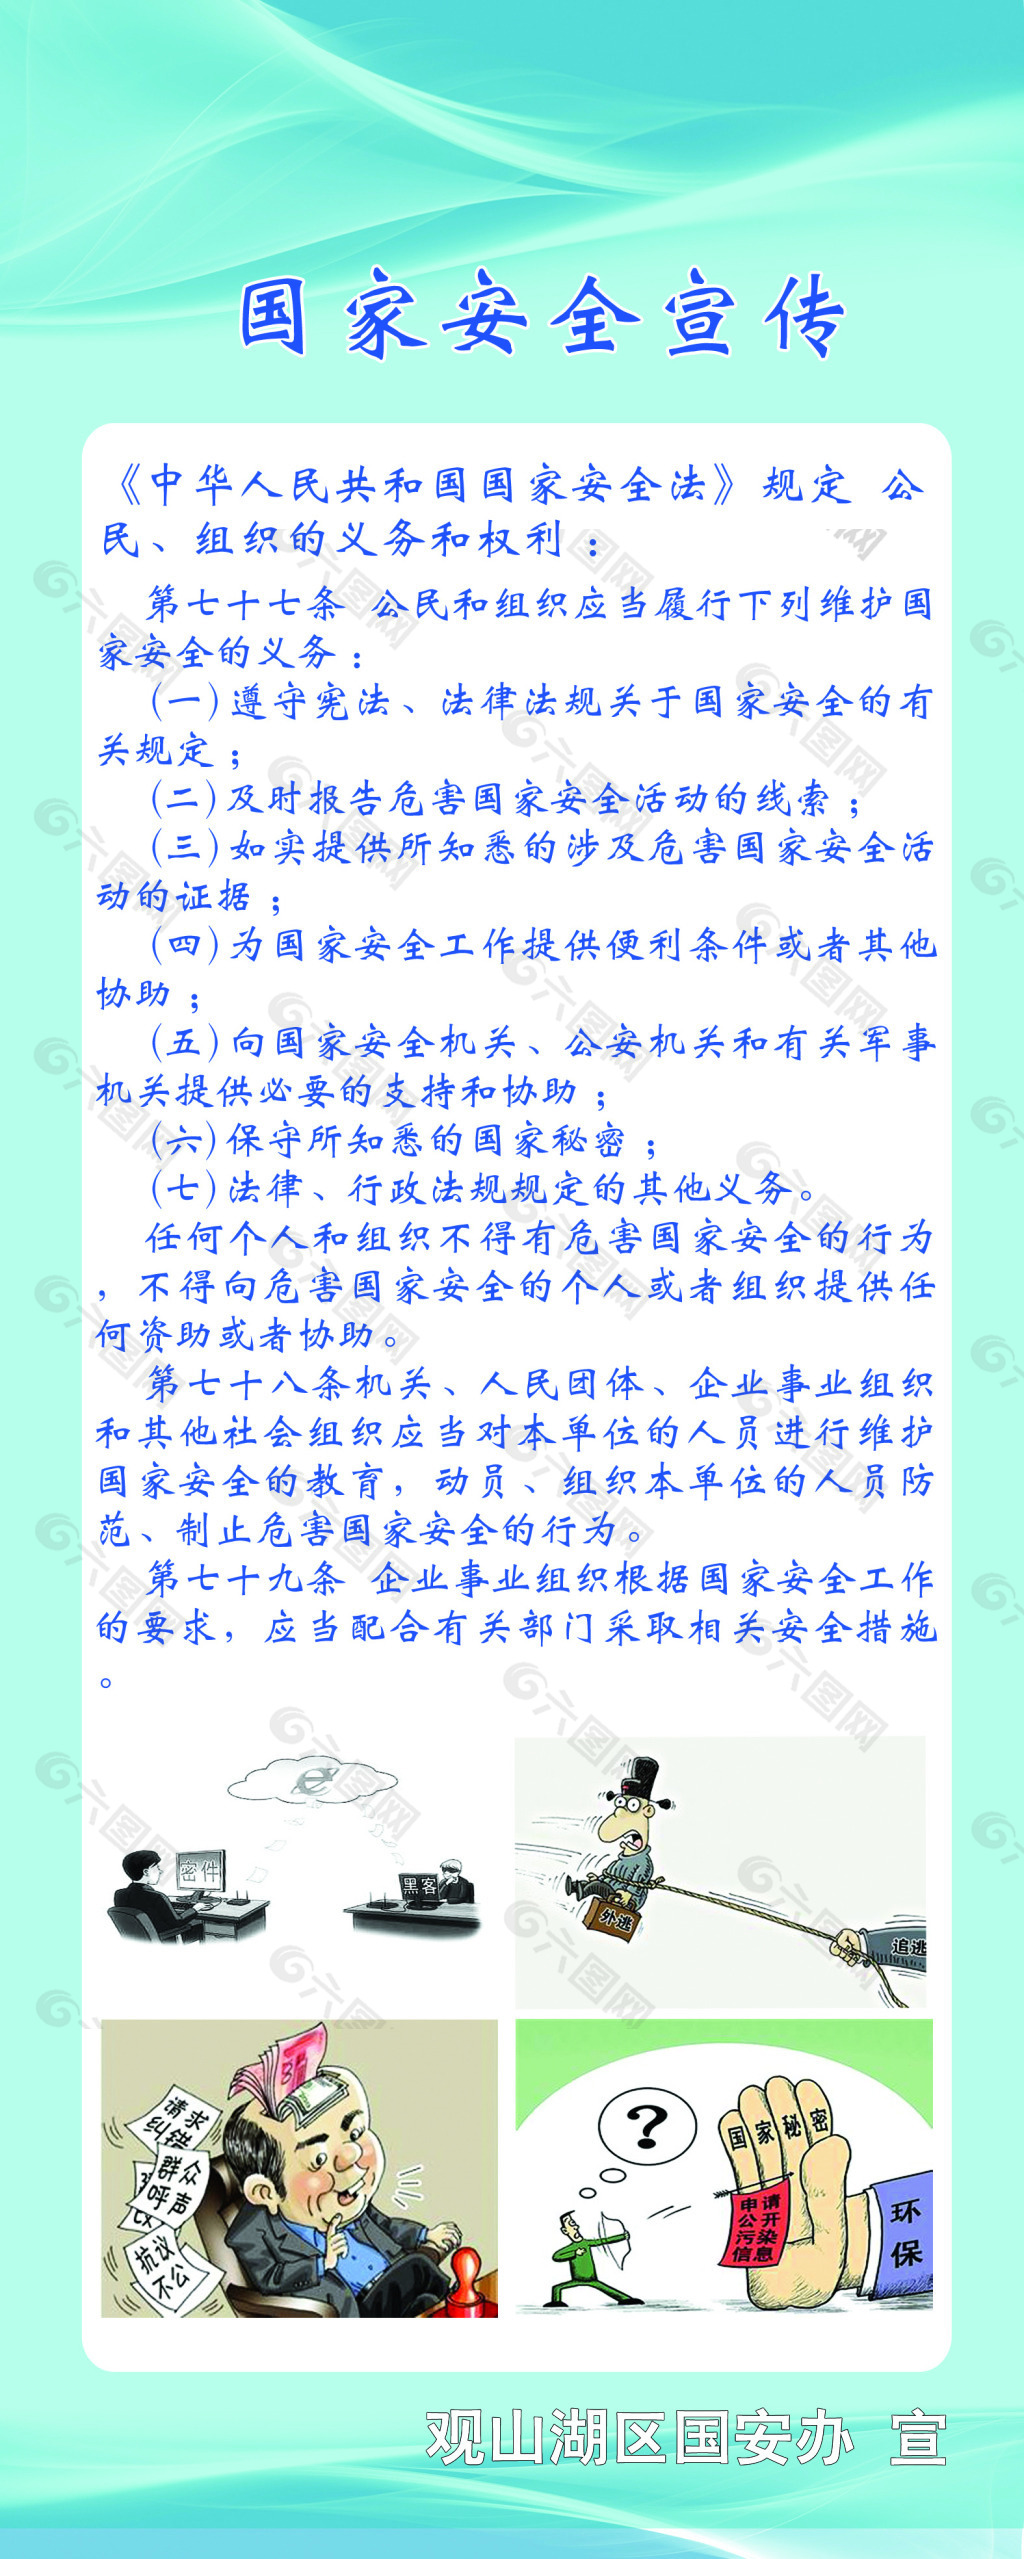 国家安全宣传
《中华人民共和国国家安全法》规定 公
民、组织的义务和权利：
第七十七条 公民和组织应当履行下列维护国
家安全的义务：
(一)遵守宪法、法律法规关于国家安全的有
关规定；
(二)及时报告危害国家安全活动的线索；
(三)如实提供所知悉的涉及危害国家安全活
动的证据；
(四)为国家安全工作提供便利条件或者其他
协助；
(五)向国家安全机关、公安机关和有关军事
机关提供必要的支持和协助；
(六)保守所知悉的国家秘密；
(七)法律、行政法规规定的其他义务。
任何个人和组织不得有危害国家安全的行为
，不得向危害国家安全的个人或者组织提供任
何资助或者协助。
第七十八条机关、人民团体、企业事业组织
和其他社会组织应当对本单位的人员进行维护
国家安全的教育，动员、组织本单位的人员防
范、制止危害国家安全的行为。
第七十九条 企业事业组织根据国家安全工作
的要求，应当配合有关部门采取相关安全措施
。
密件
黑客
外逃
追逃
请求
纠错
群众
呼声
抗议
不公
?
国家秘密
申请
公开
污染
信息
环
保
观山湖区国安办 宣
六图网